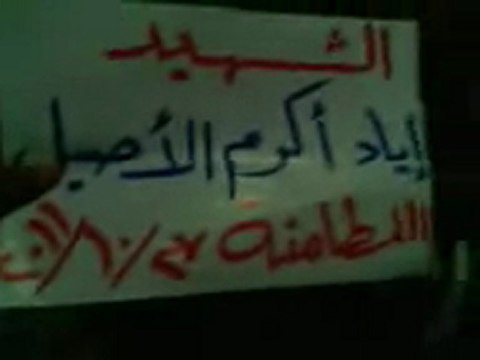 الشهيد
إياد أكرم الأصيل
اللطامنة